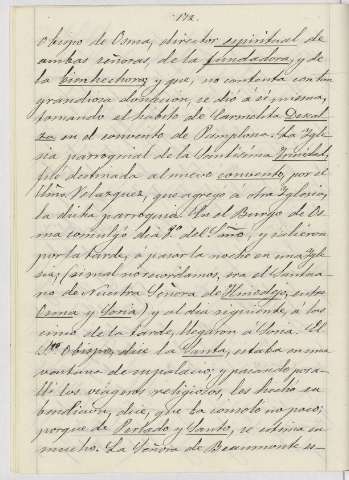 172.
Obispo de Osma, director espiritual de
ambas señoras, de la fundadora, y de
la bienhechora y que, no contenta con tan
grandiosa donacion, se dió á sí misma,
tomando el habito de Carmelita Descal
za en el convento de Pamplona. La Igle
sia parroquial de la Santísima Trinidad,
fué destinada al nuevo convento, por el
Velazquez, que agregó á otra Iglesia,
la dicha parroquia. En el Burgo de Os
ma comulgó dia 1º del Año, y salieron
por la tarde, á pasar la noche en una Igle
sia, (si mal no recordamos, era el Santua
rio de Nuestra Señora de Hinodejo, entre
Osma y Soria) y al dia siguiente, á las
cinco de la tarde, llegaron á Soria. El
Sto Obispo, dice la Santa, estaba en una
ventana de su palacio; y pasando por a-
lli los viageros religiosos, les hechó su
bendicion, dice, que la consoló no poco;
porque de Perlado y Santo, se estima en
mucho. La Señora de Beaumonte es-